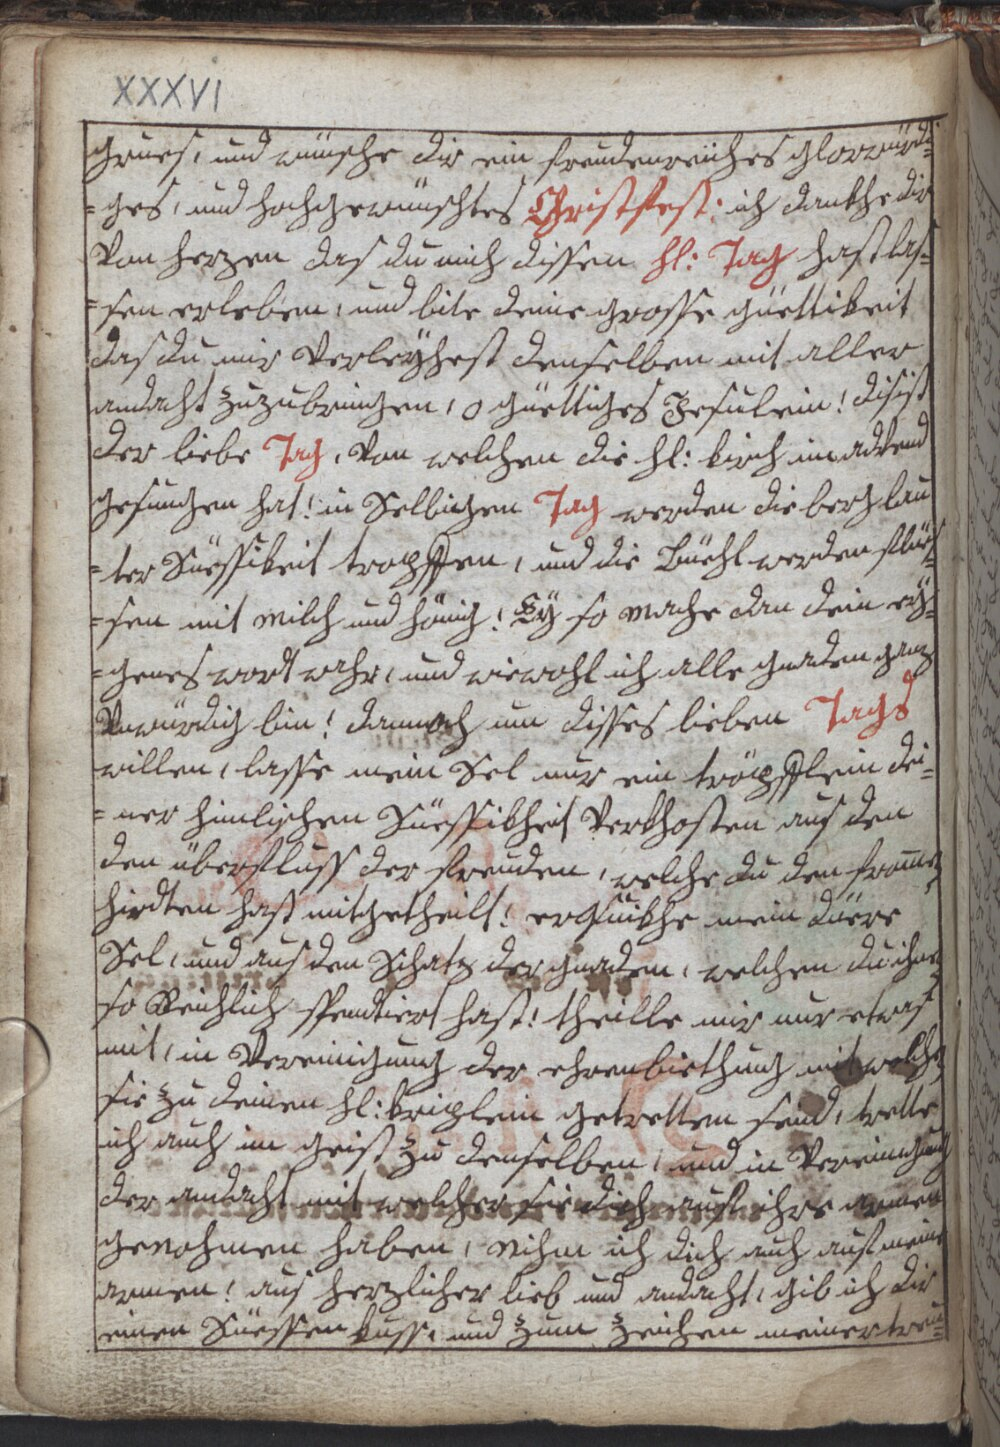 XXXVI
grues, und wünsche dir ein freudenreiches glorwürdi=
=ges, und hochgewünschtes Christfest: ich dankhe dir
Von herzen das du mich dissen hl: Tag hast las=
=sen erleben, und bite deine grosse güettikeit
das du mir Verleyhest denselben mit aller
andacht zuzubringen, o güettiges Jesulein! dis ist
der liebe Tag, Von welchen die hl: kirch im advend
gesungen hat! in Selbigen Tag werden die berg lau
=ter Süessikeit tropffen, und die Büehl werden flüs=
=sen mit Milch und hönig! Ey so Mache dan dein ey=
=genes wort wahr, und wiewohl ich alle gnaden ganz
Unwürdig bin! dannoch um disses lieben Tags
willen, lasse mein Sel nur ein tröpfflein dei=
=ner himlischen Süessikheit Verkhosten aus den
den überfluss der freuden, welche du den frommen
hirdten hast mitgetheilt! erquikhe mein düere
Sel, und aus den Schatz der gnaden, welchen du ihnen
so Reichlich spendiert hast! theille mir nur etwas
mit, in Vereinigung der ehrenbiethung mit welcher
sie zu deinen hl: kriplein getretten send, trette
ich auch im geist zu denselben, und in Vereinigung
der andacht mit welcher sie dich auf ihre armen
genohmen haben, Nihm ich dich auch auf meine
armen! aus herzlicher lieb und andacht, gib ich dir
einen Süessen kuss, und zum zeichen meiner treu=